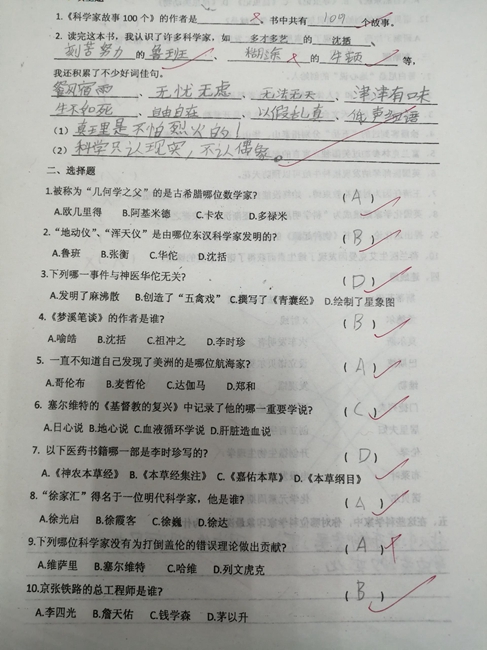 1.《科学家故事100个》的作者是 、书中共有 109 个故事。
2. 读完这本书，我认识了许多科学家，如 多才多艺 的 沈括 、
刻苦努力 的 鲁班 、 糊涂 的 牛顿 等，
我还积累了不少好词佳句。
餐风宿雨 、 无忧无虑 无法无天 、 津津有味
生不如死 、 自由自在 、 以假乱真 低声细语
（1） 真理是不怕烈火的！
（2） 科学只认现实，不认偶象。
二、选择题
1.被称为“几何学之父”的是古希腊哪位数学家? ( A )
A.欧几里得 B.阿基米德 C.卡农 D.多禄米
2. “地动仪”、“浑天仪”是由哪位东汉科学家发明的? ( B )
A.鲁班 B.张衡 C.华佗 D.沈括
3.下列哪一事件与神医华佗无关? ( D )
A.发明了麻沸散 B.创造了“五禽戏” C.撰写了《青囊经》 D.绘制了星象图
4.《梦溪笔谈》的作者是谁? ( B )
A.喻皓 B.沈括 C.祖冲之 D.李时珍
5. 一直不知道自己发现了美洲的是哪位航海家? ( A )
A.哥伦布 B.麦哲伦 C.达伽马 D.郑和
6. 塞尔维特的《基督教的复兴》中记录了他的哪一重要学说? ( C )
A.日心说 B.地心说 C.血液循环学说 D.肝脏造血说
7. 以下医药书籍哪一部是李时珍写的? ( D )
A.《神农本草经》 B.《本草经集注》 C.《嘉佑本草》 D.《本草纲目》
8.“徐家汇”得名于一位明代科学家，他是谁? ( A )
A.徐光启 B.徐霞客 C.徐巍 D.徐达
9.下列哪位科学家没有为打倒盖伦的错误理论做出贡献? ( A )
A.维萨里 B.塞尔维特 C.哈维 D.列文虎克
10.京张铁路的总工程师是谁? ( B )
A.李四光 B.詹天佑 C.钱学森 D.茅以升